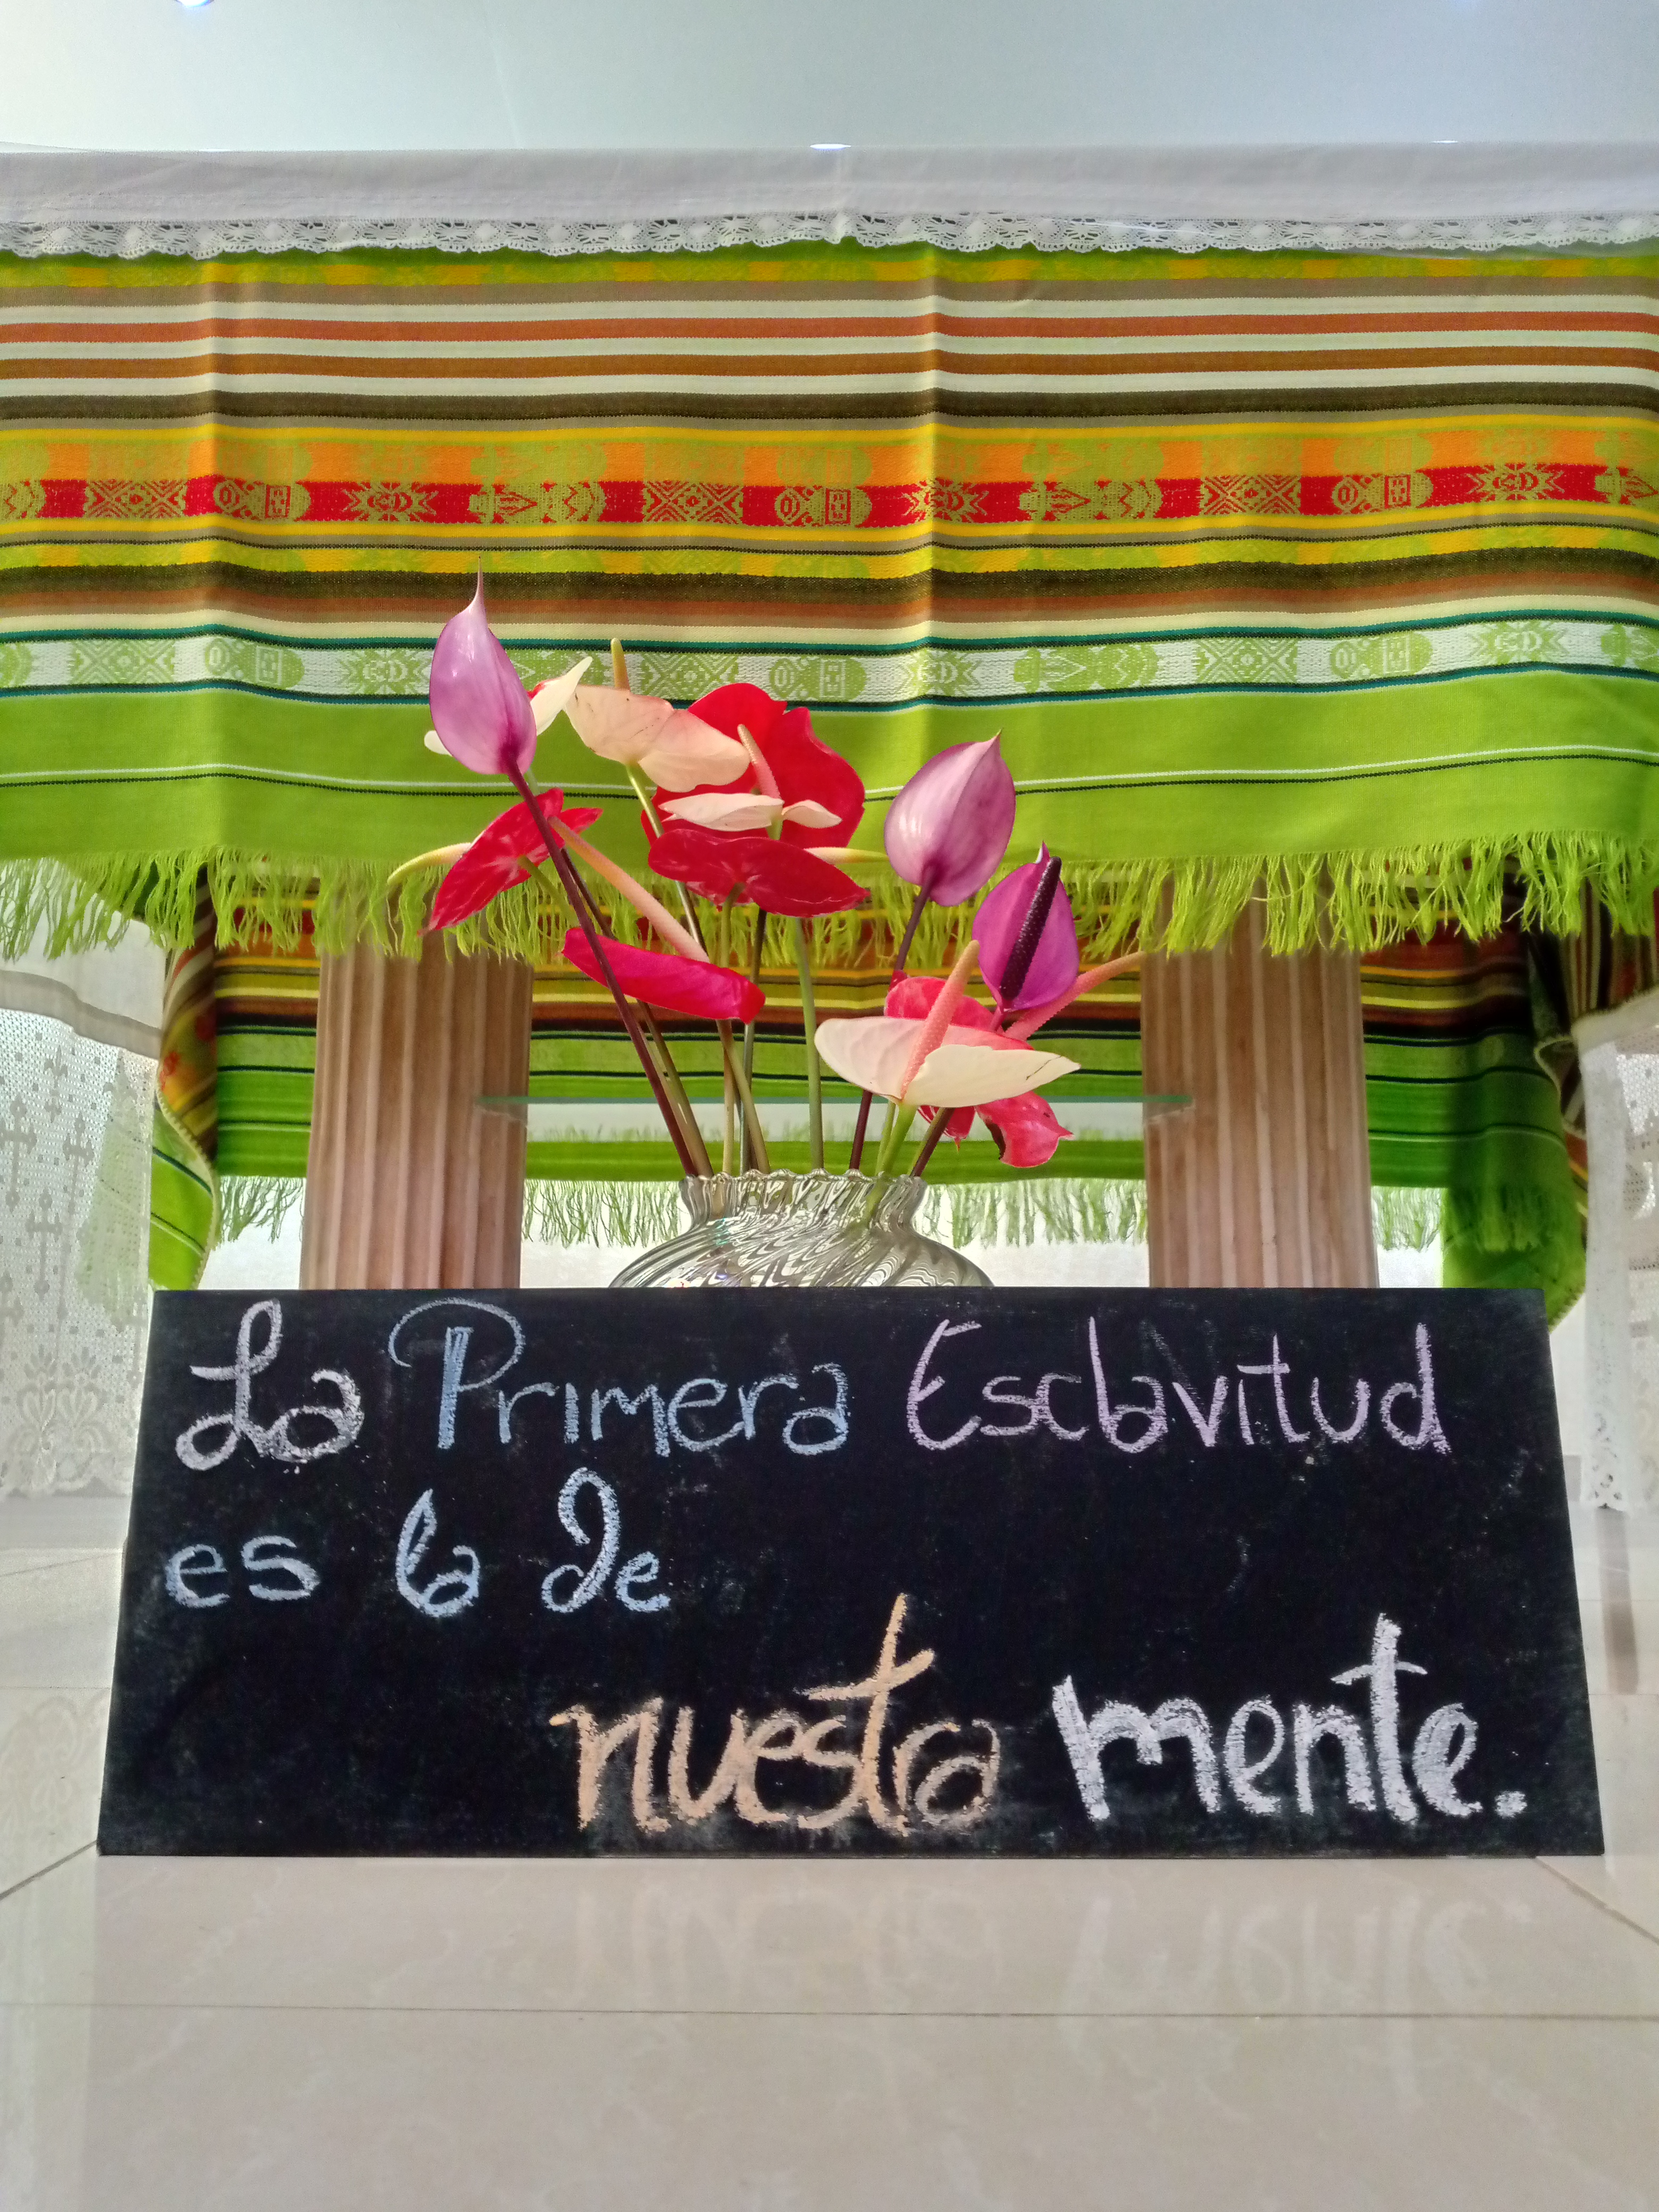 La Primera Esclavitud
es la de
nuestra mente.